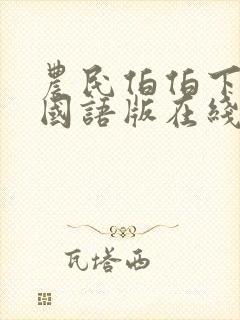 農民伯伯下
國語版在綫
瓦塔西